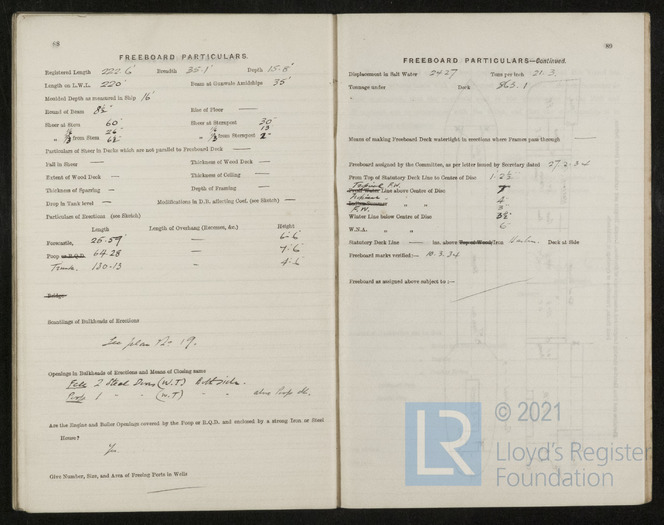 88
FREEBOARD PARTICULARS.
Registered Length 222.6' Breadth 35.1' Depth 15.8'
Length on L.W.L. 220' Beam at Gunwale Amidships 35'
Moulded Depth as measured in Ship 16'
Round of Beam 8½"
Sheer at Stem 60" Sheer at Sternpost 30"
" from Stem 26" " from Sternpost 13"
Particulars of Sheer in Decks which are not parallel to Freeboard Deck —
Fall in Sheer — Thickness of Wood Deck —
Extent of Wood Deck — Thickness of Ceiling —
Thickness of Sparring — Depth of Framing —
Drop in Tank level — Modifications in D.B. affecting Coef. (see Sketch) —
Particulars of Erections (see Sketch)
Length Length of Overhang (Recesses, &c.) Height
Forecastle, 25.59 — 6.6
Poop or R.Q.D. 64.28 — 7.6
Trunk. 130.13 — 4.6
Bridge
Scantlings of Bulkheads of Erections
See plan 12-19.
Openings in Bulkheads of Erections and Means of Closing same
Fcle 2 Steel Doors (W.T) Both sides.
Poop 1 " " (W.T) " "
Are the Engine and Boiler Openings covered by the Poop or R.Q.D. and enclosed by a strong Iron or Steel
House?
Yes
Give Number, Size, and Area of Freeing Ports in Wells
89
FREEBOARD PARTICULARS—Continued.
Displacement in Salt Water 2427 Tons per Inch 21.3
Tonnage under Deck 865.1
Means of making Freeboard Deck watertight in erections where Frames pass through —
Freeboard assigned by the Committee, as per letter issued by Secretary dated 27.2.34
From Top of Statutory Deck Line to Centre of Disc 1-2½
Tropical F.W.
Fresh Water Line above Centre of Disc 7
Tropical " " 4
F.W. 3
Winter Line below Centre of Disc 3½
W.N.A. " " 6
Statutory Deck Line — ins. above Top of Wood/Iron Deck at Side
Freeboard marks verified:— 10.3.34
Freeboard as assigned above subject to:—
LR
© 2021
Lloyd's Register
Foundation